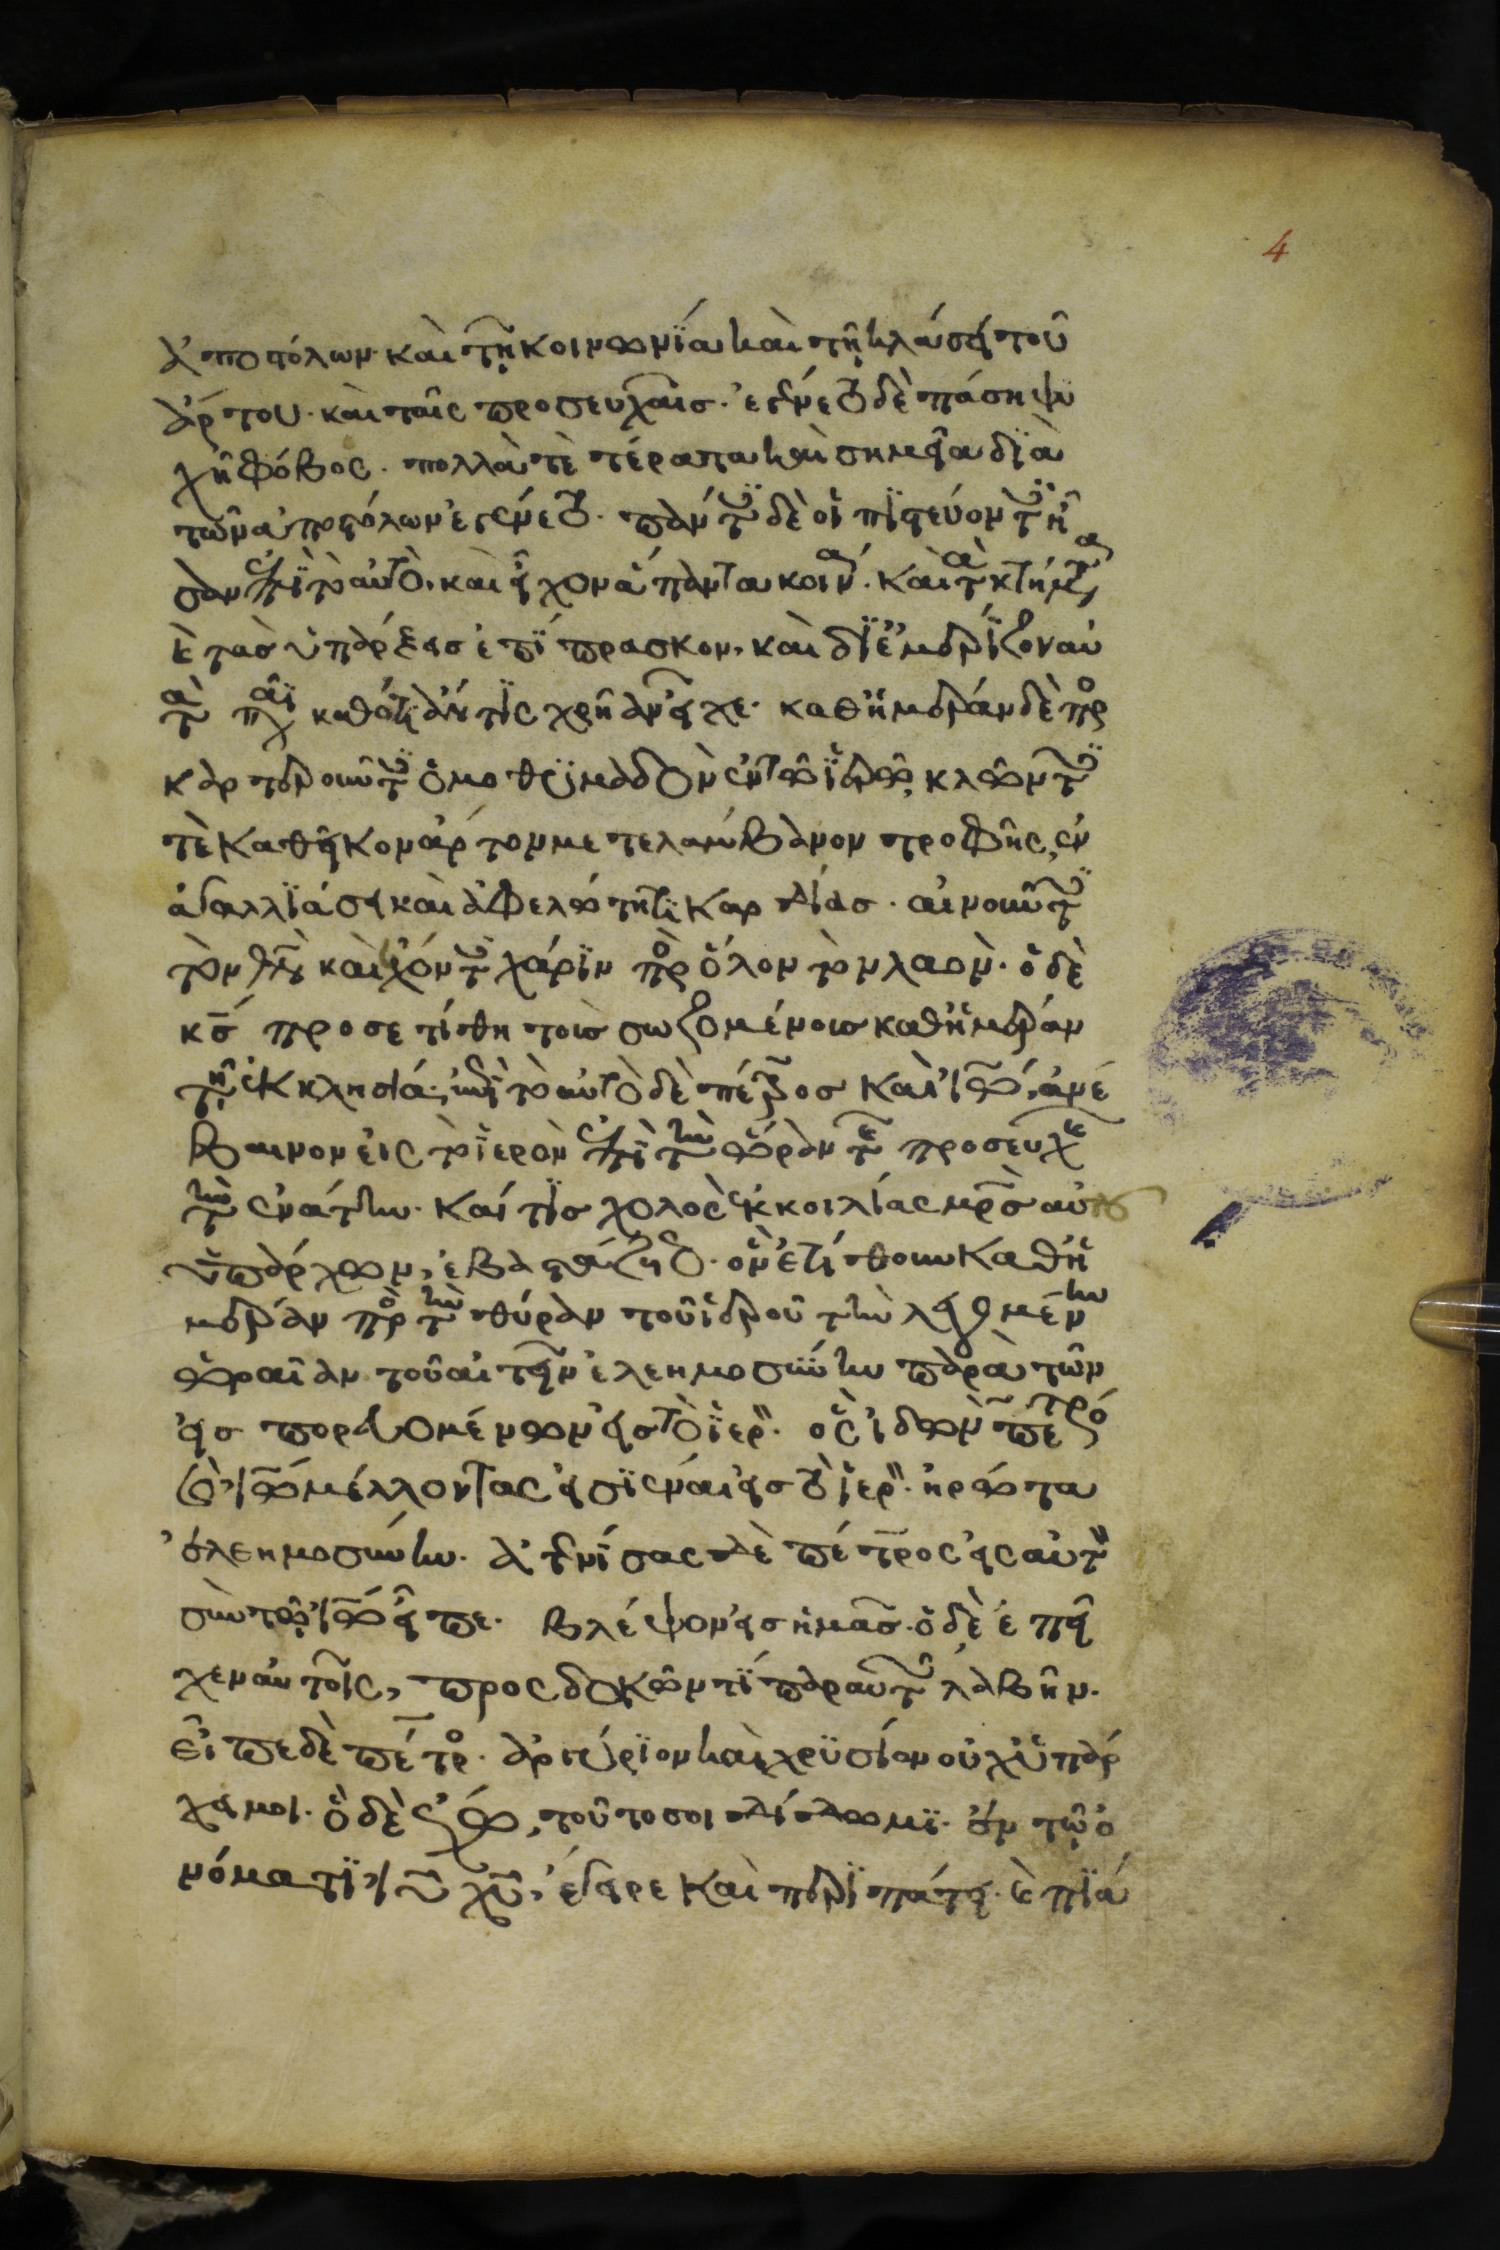 4
ἀποστόλων· καὶ τῆ κοινωνΐα καὶ τῆ κλάσει τοῦ
ἄρτου· καὶ ταῖς προσευχαῖσ· ἐγένετο δὲ πάση ψυ
χῆ φόβος· πολλὰ τὲ τέρατα καὶ σημεῖα δϊὰ
τῶν ἀποστόλων ἐγένετο· πάντες δὲ οἱ πϊστεύοντες ἦ
σαν ἐπῒ τὸ αὐτὸ, καὶ εἶχον ἅπαντα κοινά· καὶ τὰ κτήματα
καὶ τὰσ ὑπάρξεισ ἐπΐπρασκον, καὶ διεμέρϊζον αὐ
τὰ πᾶσϊ καθότι ἄν τϊς χρείαν εἶχε· καθημέραν δὲ προσ
καρτεροῦντες ὁμοθϋμαδὸν ἐν τῶ ἱερῶ, κλῶντες
τὲ κατ οἶκον ἄρτον μετελάμβανον τροφῆς, ἐν
ἀγαλλϊάσει καὶ ἀφελότητι καρδίασ· αἰνοῦντες
τὸν θν καὶ ἔχοντες χάρϊν πρὸς ὅλον τὸν λαὸν· ὁ δὲ
κσ προσετίθη τοῖσ σωζομένοισ καθημέραν
τῆ ἐκκλησία· ἐπῒ τὸ αὐτὸ δὲ πέτροσ καὶ ἰω, ἀνέ
βαινον εἰς τὸ ἱερὸν ἐπῒ τὴν ὥραν τῆς προσευχῆς
τὴν ἐνάτην· καί τϊσ χολὸς ἐκ κοιλίας μρσ αὐτου
ὑπάρχων, ἐβαστάζετο· ὃν ἐτίθουν καθη
μέραν πρὸς τὴν θύραν τοῦ ἱεροῦ τὴν λεγομένην
ὡραῖαν τοῦ αἰτεῖν ἐλεημοσύνην παρὰ τῶν
εἰσπορευομένων εἰσ τὸ ἱερόν· ὃς ἰδὼν πέτρον
καὶ ἰω μέλλοντας εἰσϊέναι εἰσ τὸ ἱερόν· ἠρώτα
ἐλεημοσύνην· ἀτενίσας δὲ πέτρος εἰς αὐτὸν
σὺν τῶ ἰω εἶπε· βλέψον εἰσ ἡμᾶσ· ὁ δὲ ἐπεῖ
χεν αὐτοῖς, προσδοκῶν τϊ παρ αὐτῶν λαβῆν·
εἶπε δὲ πέτρος· ἀργύρϊον καὶ χρϋσίον οὐχ ὑπάρ
χει μοι· ὃ δὲ ἔχω, τοῦτο σοι δίδωμϊ· ἐν τῶ ὀ
νόματϊ ιυ χυ, ἔγειρε καὶ περϊπάτει· καὶ πϊά